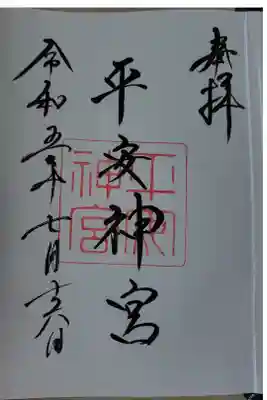 奉拝
平安神宮
令和五年七月十六日
平安神宮